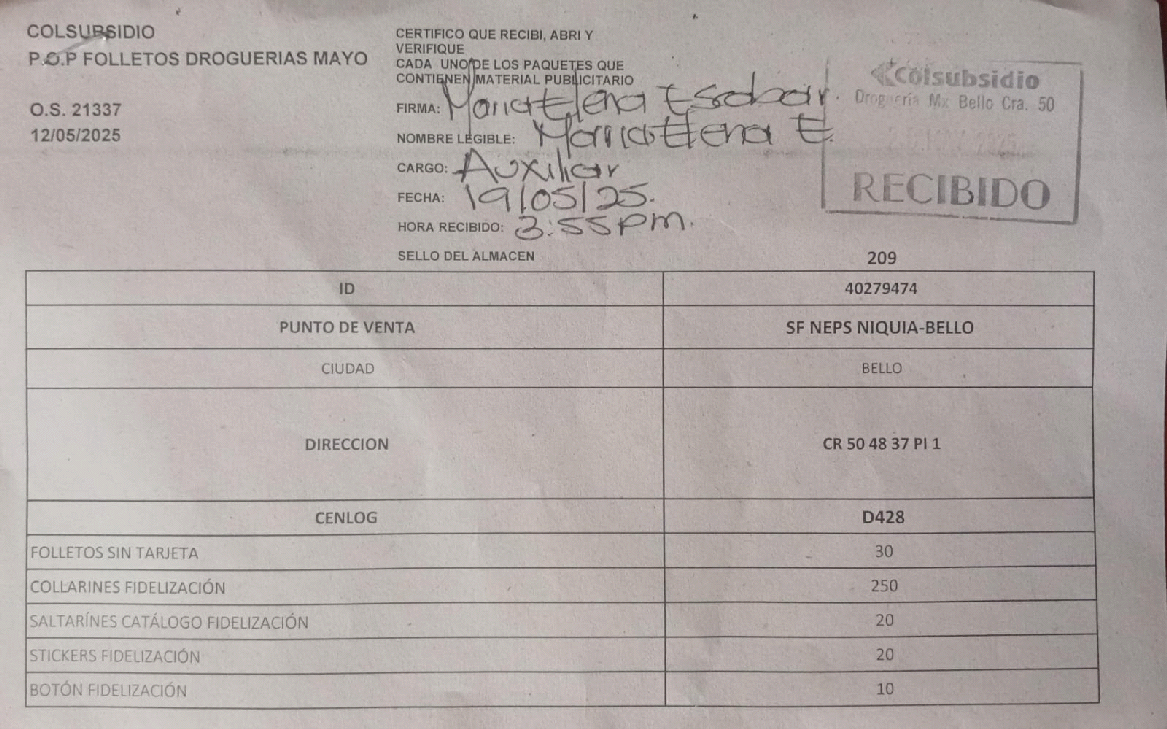 COLSUBSIDIO
P.O.P FOLLETOS DROGUERIAS MAYO
O.S. 21337
12/05/2025
CERTIFICO QUE RECIBI, ABRI Y
VERIFIQUE
CADA UNO DE LOS PAQUETES QUE
CONTIENEN MATERIAL PUBLICITARIO
FIRMA: Maria Elena Escobar.
NOMBRE LEGIBLE: Maria Elena E.
CARGO: Auxiliar
FECHA: 19/05/25.
HORA RECIBIDO: 3:55 pm.
SELLO DEL ALMACEN
Colsubsidio
Drogueria Mx Bello Cra. 50
RECIBIDO
209
ID 40279474
PUNTO DE VENTA SF NEPS NIQUIA-BELLO
CIUDAD BELLO
DIRECCION CR 50 48 37 PI 1
CENLOG D428
FOLLETOS SIN TARJETA 30
COLLARINES FIDELIZACIÓN 250
SALTARÍNES CATÁLOGO FIDELIZACIÓN 20
STICKERS FIDELIZACIÓN 20
BOTÓN FIDELIZACIÓN 10